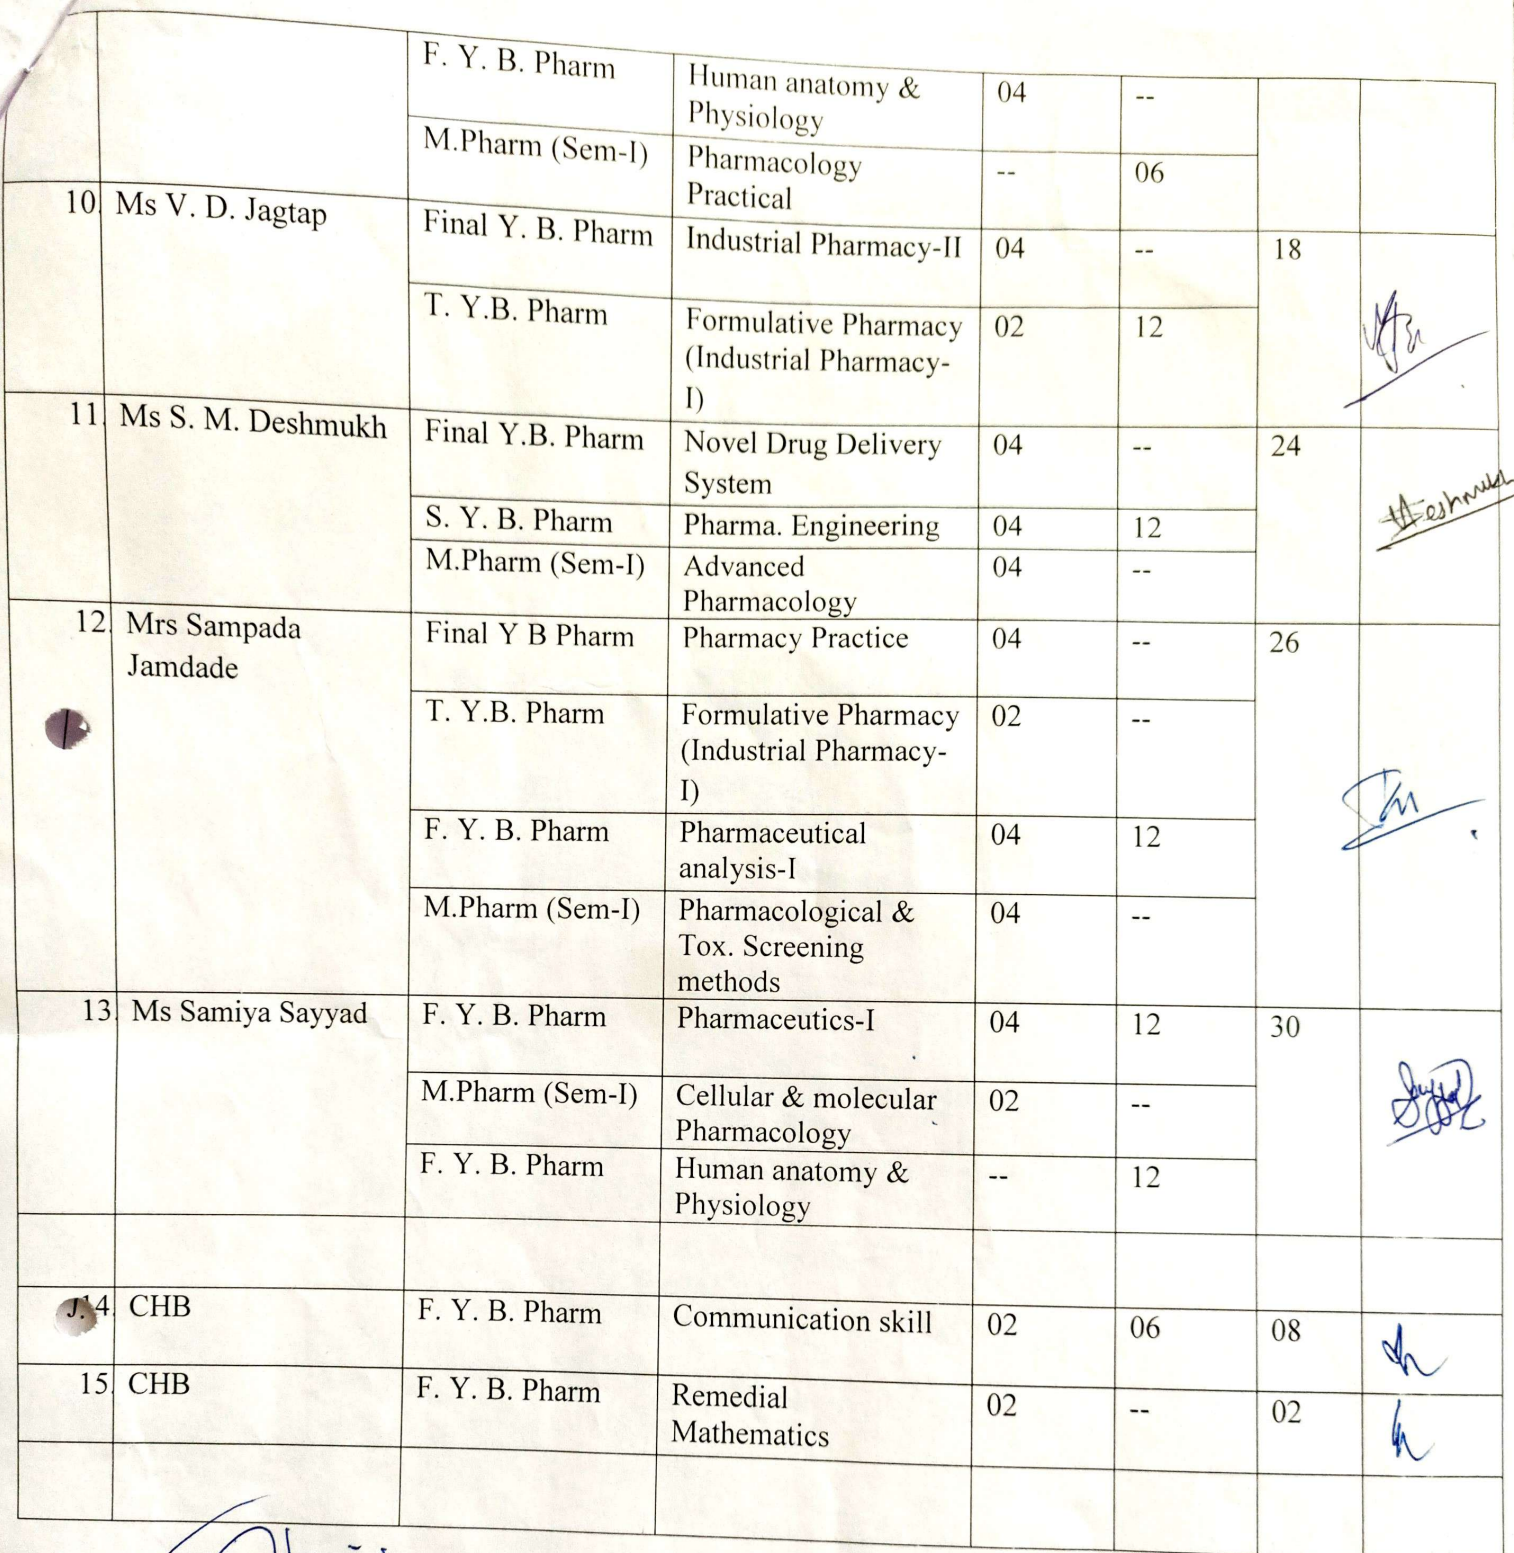 F. Y. B. Pharm Human anatomy & 04 --
Physiology
M.Pharm (Sem-I) Pharmacology -- 06
Practical
10. Ms V. D. Jagtap Final Y. B. Pharm Industrial Pharmacy-II 04 -- 18
T. Y.B. Pharm Formulative Pharmacy 02 12
(Industrial Pharmacy-
I)
11. Ms S. M. Deshmukh Final Y.B. Pharm Novel Drug Delivery 04 -- 24
System
Deshmukh
S. Y. B. Pharm Pharma. Engineering 04 12
M.Pharm (Sem-I) Advanced 04 --
Pharmacology
12. Mrs Sampada Final Y B Pharm Pharmacy Practice 04 -- 26
Jamdade
T. Y.B. Pharm Formulative Pharmacy 02 --
(Industrial Pharmacy-
I)
F. Y. B. Pharm Pharmaceutical 04 12
analysis-I
M.Pharm (Sem-I) Pharmacological & 04 --
Tox. Screening
methods
13. Ms Samiya Sayyad F. Y. B. Pharm Pharmaceutics-I 04 12 30
M.Pharm (Sem-I) Cellular & molecular 02 --
Pharmacology
F. Y. B. Pharm Human anatomy & -- 12
Physiology
14. CHB F. Y. B. Pharm Communication skill 02 06 08
15. CHB F. Y. B. Pharm Remedial 02 -- 02
Mathematics